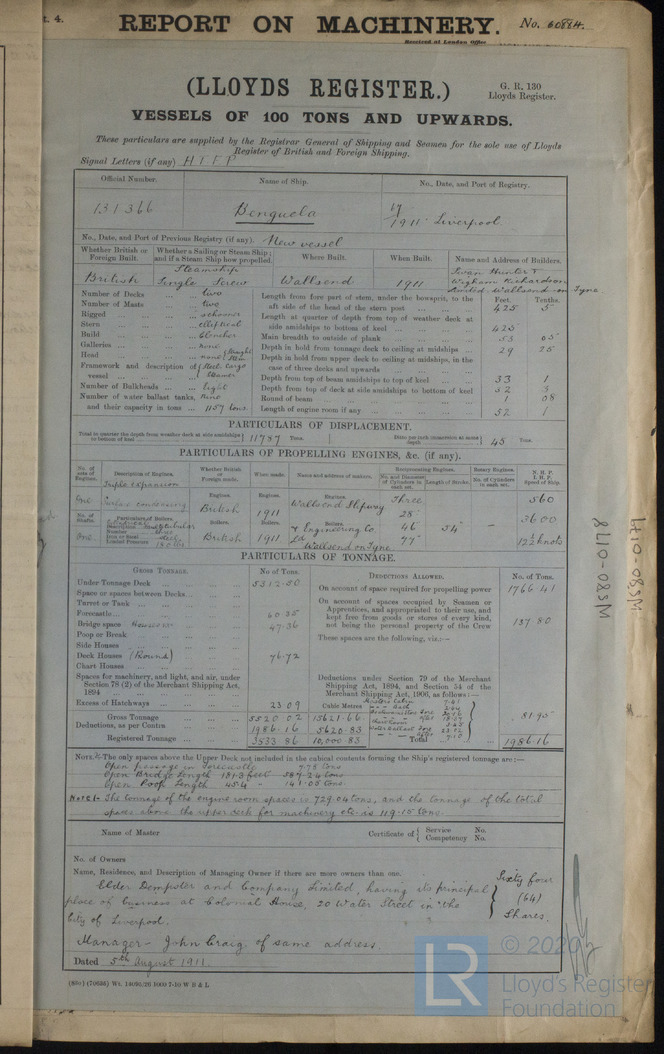 REPORT ON MACHINERY. No. 60884.
Received at London Office
(LLOYDS REGISTER.)
G. R. 130
Lloyds Register.
VESSELS OF 100 TONS AND UPWARDS.
These particulars are supplied by the Registrar General of Shipping and Seamen for the sole use of Lloyds
Register of British and Foreign Shipping.
Signal Letters (if any)
Official Number. Name of Ship. No., Date, and Port of Registry.
131366 Benguela 1911 Liverpool
No., Date, and Port of Previous Registry (if any). New vessel
Whether British or Foreign Built. Whether a Sailing or Steam Ship; and if a Steam Ship how propelled. Where Built. When Built. Name and Address of Builders.
British Steamship Single Screw Wallsend 1911 Swan Hunter & Wigham Richardson Limited Wallsend on Tyne
Number of Decks two
Number of Masts two
Rigged schooner
Stern elliptical
Build Clencher
Galleries none
Head none
Framework and description of vessel Steel Cargo Steamer
Number of Bulkheads eight
Number of water ballast tanks, nine
and their capacity in tons 1157 tons
Feet. Tenths.
Length from fore part of stem, under the bowsprit, to the
aft side of the head of the stern post 425 5
Length at quarter of depth from top of weather deck at
side amidships to bottom of keel 425
Main breadth to outside of plank 53 05
Depth in hold from tonnage deck to ceiling at midships 29 25
Depth in hold from upper deck to ceiling at midships, in the
case of three decks and upwards
Depth from top of beam amidships to top of keel 33 1
Depth from top of deck at side amidships to bottom of keel 32 3
Round of beam 1 08
Length of engine room if any 52 1
PARTICULARS OF DISPLACEMENT.
Total to quarter the depth from weather deck at side amidships to bottom of keel 11787 Tons. Ditto per inch immersion at same depth 45 Tons.
PARTICULARS OF PROPELLING ENGINES, &c. (if any).
No. of sets of Engines. Description of Engines. Whether British or Foreign made. When made. Name and address of makers. Reciprocating Engines. Rotary Engines. N. H. P. I. H. P. Speed of Ship.
No. and Diameter of Cylinders in each set. Length of Stroke. No. of Cylinders in each set.
One Triple expansion Surface condensing
Engines. British Engines. 1911 Engines. Wallsend Slipway
Three 28" 46" 77" 54" 560 3600 12½ knots
No. of Shafts. Particulars of Boilers. Description Number Iron or Steel Loaded Pressure
One Steel 180 lbs
Boilers. British Boilers. 1911 & Engineering Co Ld Wallsend on Tyne
PARTICULARS OF TONNAGE.
GROSS TONNAGE. No of Tons. DEDUCTIONS ALLOWED. No. of Tons.
Under Tonnage Deck 5312.50
Space or spaces between Decks
Turret or Trunk
Forecastle 60.35
Bridge space 47.36
Poop or Break
Side Houses
Deck Houses (Round) 76.72
Chart Houses
Spaces for machinery, and light, and air, under
Section 78 (2) of the Merchant Shipping Act,
1894
Excess of Hatchways 23.09
On account of space required for propelling power 1766.41
On account of spaces occupied by Seamen or
Apprentices, and appropriated to their use, and
kept free from goods or stores of every kind,
not being the personal property of the Crew 137.80
These spaces are the following, viz.:—
Deductions under Section 79 of the Merchant
Shipping Act, 1894, and Section 54 of the
Merchant Shipping Act, 1906, as follows:—
Cubic Metres
Gross Tonnage 5520.02 15621.66
Deductions, as per Contra 1986.16 5620.83
Registered Tonnage 3533.86 10,000.83
81.95
Total 1986.16
NOTE.—The only spaces above the Upper Deck not included in the cubical contents forming the Ship's registered tonnage are:—
Open passage in Forecastle 7.78 tons
Open Bridge Length 131.3 feet 587.24 tons
Open Poop Length 45.4 " 141.05 tons
Note:- The tonnage of the engine room spaces is 729.04 tons, and the tonnage of the total
spaces above the upper deck for machinery etc. is 119.15 tons.
Name of Master Certificate of { Service No. Competency No.
No. of Owners
Name, Residence, and Description of Managing Owner if there are more owners than one.
Elder Dempster and Company Limited, having its principal
place of business at Colonial House, 20 Water Street in the
City of Liverpool.
Sixty four
(64)
Shares.
Manager - John Craig of same address.
Dated 5th August 1911.
LR © 2020
Lloyd's Register
Foundation
W580-0178
W580-0174